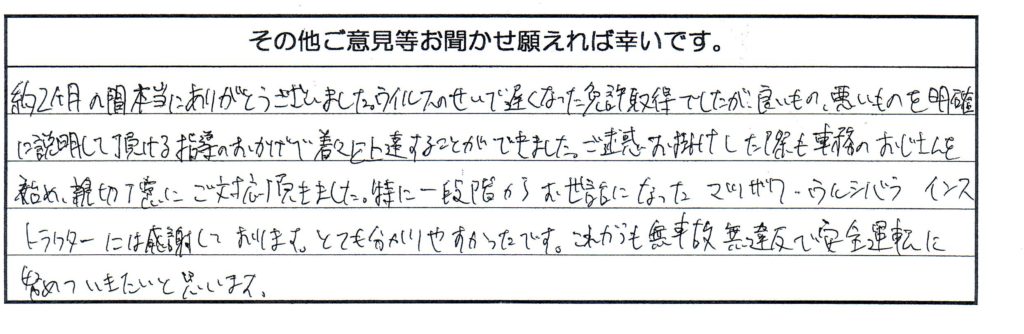 その他ご意見等お聞かせ願えれば幸いです。
約2ヶ月の間本当にありがとうございました。ウイルスのせいで遅くなった免許取得でしたが、良いもの、悪いものを明確
に説明して頂ける指導のおかげで着々と上達することができました。ご迷惑お掛けした際も事務のおじさんを
始め、親切丁寧にご対応頂きました。特に一段階からお世話になったマツザワ・ウルシバライインス
トラクターには感謝しております。とても分かりやすかったです。これからも無事故無違反で安全運転に
努めていきたいと思います。